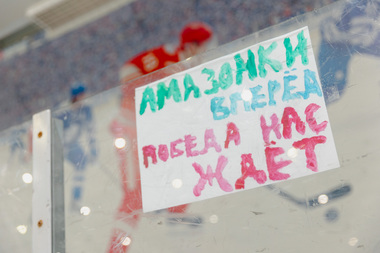 АМАЗОНКИ
ВПЕРЁД
ПОБЕДА НАС
ЖДЁТ